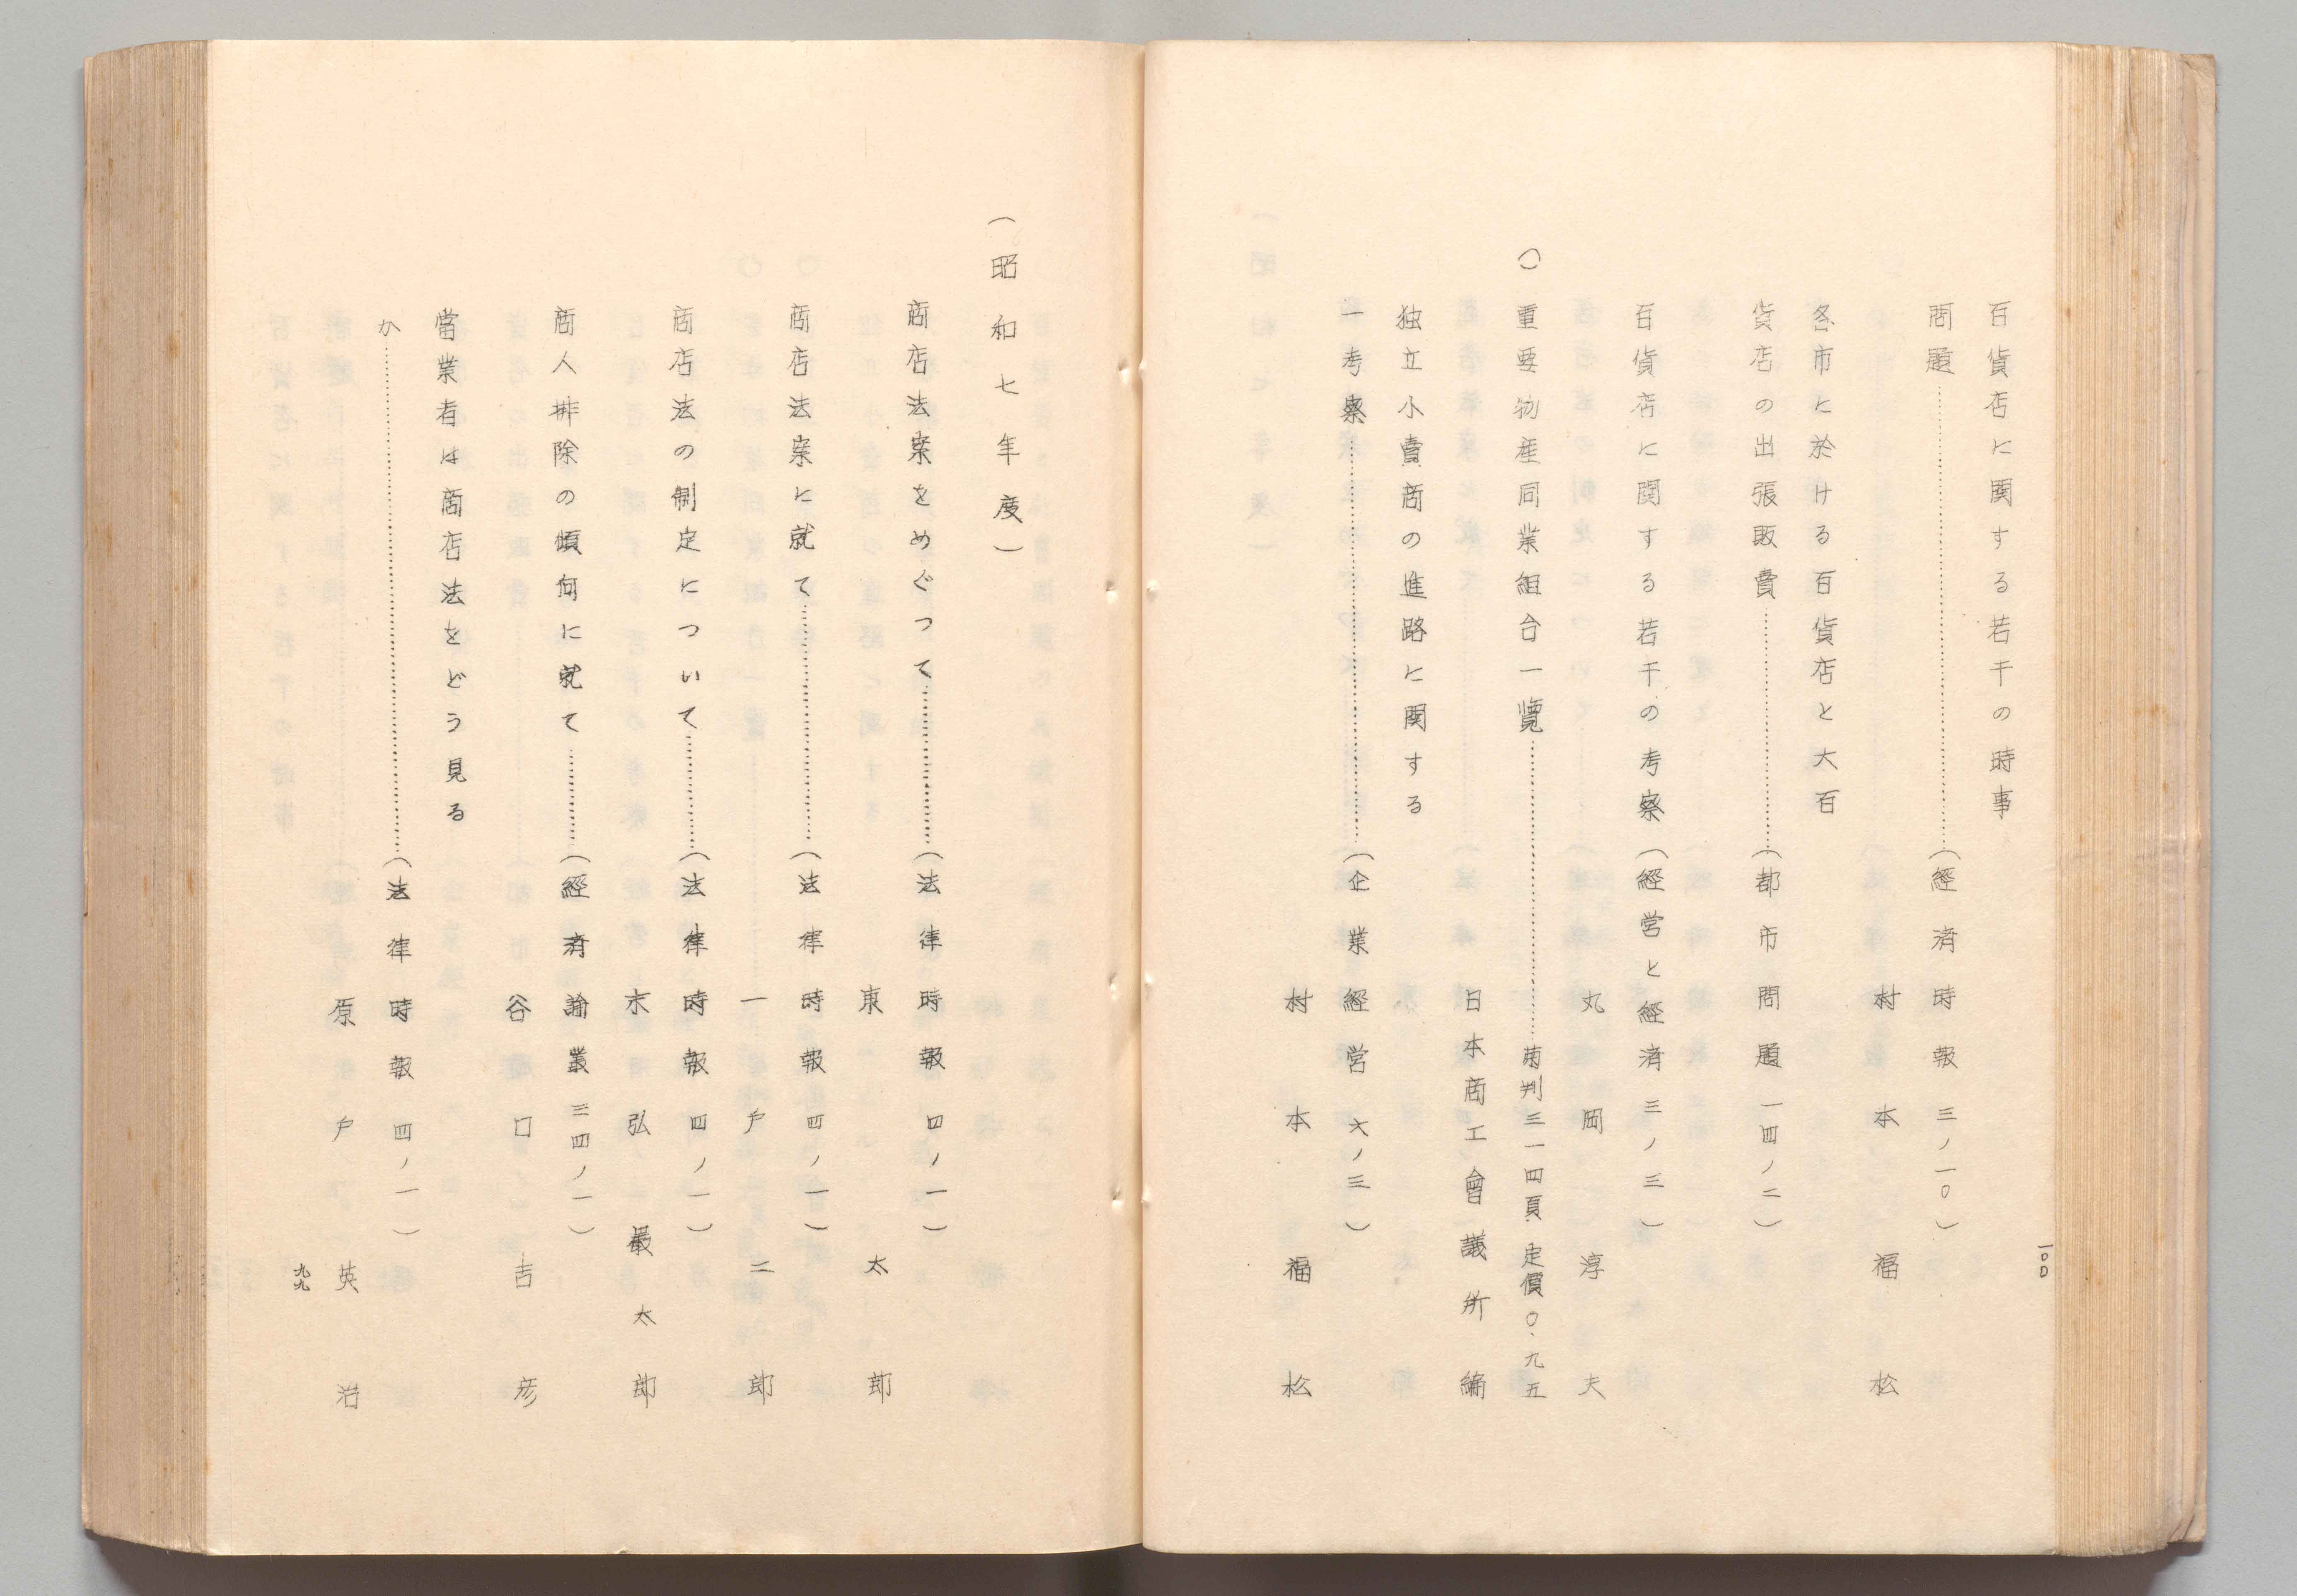 百貨店に関する若干の時事
問題………(經済時報 三ノ一〇)
村本福松
各市に於ける百貨店と大百
貨店の出張販賣………(都市問題 一四ノ二)
百貨店に関する若干の考察(經営と經済 三ノ三)
丸岡淳夫
〇重要物産同業組合一覽………菊判三一四頁.定價〇.九五
日本商工會議所編
独立小賣商の進路に関する
一考察………(企業經営 六ノ三)
村本福松
一〇〇
(昭和七年度)
商店法案をめぐつて………(法律時報 四ノ一)
東太郎
商店法案に就て………(法律時報 四ノ一)
一戸二郎
商店法の制定について………(法律時報 四ノ一)
末弘嚴太郎
商人排除の傾向に就て………(經済論叢 三四ノ一)
谷口吉彦
當業者は商店法をどう見る
か………(法律時報 四ノ一)
原戸英治
九九